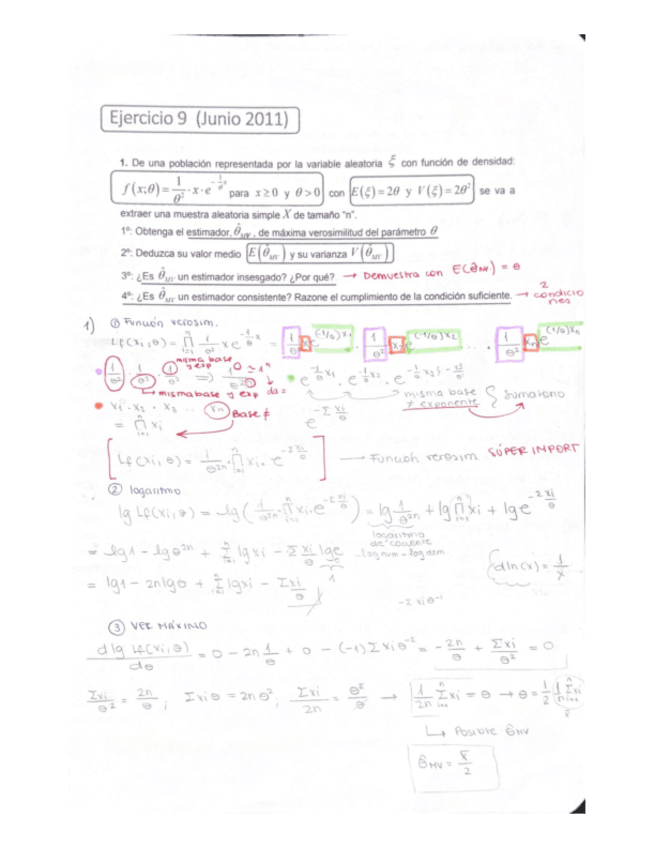 Ejercicio 9 (Junio 2011)
1. De una población representada por la variable aleatoria ξ con función de densidad:
f(x;θ)=1/θ²·x·e^(-1/θ x) para x≥0 y θ>0 con E(ξ)=2θ y V(ξ)=2θ² se va a
extraer una muestra aleatoria simple X de tamaño "n".
1º: Obtenga el estimador, θ̂_MV, de máxima verosimilitud del parámetro θ
2º: Deduzca su valor medio E(θ̂_MV) y su varianza V(θ̂_MV)
3º: ¿Es θ̂_MV un estimador insesgado? ¿Por qué? → Demuestra con E(θ̂MV) = θ
4º: ¿Es θ̂_MV un estimador consistente? Razone el cumplimiento de la condición suficiente. → 2 condiciones
1) ① Función verosim.
Lf(xi,θ) = ∏ᵢ₌₁ⁿ 1/θ² x e^(-1/θ x) = 1/θ² x₁ e^((-1/θ)x₁) · 1/θ² x₂ e^((-1/θ)x₂) . . . 1/θ² xₙ e^((-1/θ)xₙ)
misma base y exp
1/θ² · 1/θ² · 1/θ² ⇒ 1/θ²ⁿ
misma base y exp
e^(-1/θ x₁) · e^(-1/θ x₂) · e^(-1/θ x₃)
misma base ≠ exponente { Sumatorio
x₁ · x₂ · x₃ . . . xₙ Base ≠
e^(-Σ xi/θ)
= ∏ᵢ₌₁ⁿ xi
[Lf(xi,θ) = 1/θ²ⁿ · ∏ᵢ₌₁ⁿ xi · e^(-Σ xi/θ)] → Función verosim. SÚPER IMPORT
② logaritmo
lg Lf(xi,θ) = lg(1/θ²ⁿ · ∏ᵢ₌₁ⁿ xi · e^(-Σ xi/θ)) = lg 1/θ²ⁿ + lg ∏ᵢ₌₁ⁿ xi + lg e^(-Σ xi/θ)
logaritmo de cociente
log num - log dem
= lg1 - lgθ²ⁿ + Σᵢ₌₁ⁿ lg xi - Σ xi/θ lg e
1
dln(x) = 1/x
= lg1 - 2n lgθ + Σᵢ₌₁ⁿ lg xi - Σxi/θ
-Σ xi θ⁻¹
③ VER MÁXIMO
d lg Lf(xi,θ)/dθ = 0 - 2n 1/θ + 0 - (-1) Σ xi θ⁻² = -2n/θ + Σxi/θ² = 0
Σxi/θ² = 2n/θ ; Σxi θ = 2nθ² ; Σxi/2n = θ²/θ → 1/2n Σᵢ₌₁ⁿ xi = θ → θ = 1/2 1/n Σᵢ₌₁ⁿ xi
x̄
↳ Posible θ̂MV
θ̂MV = x̄/2